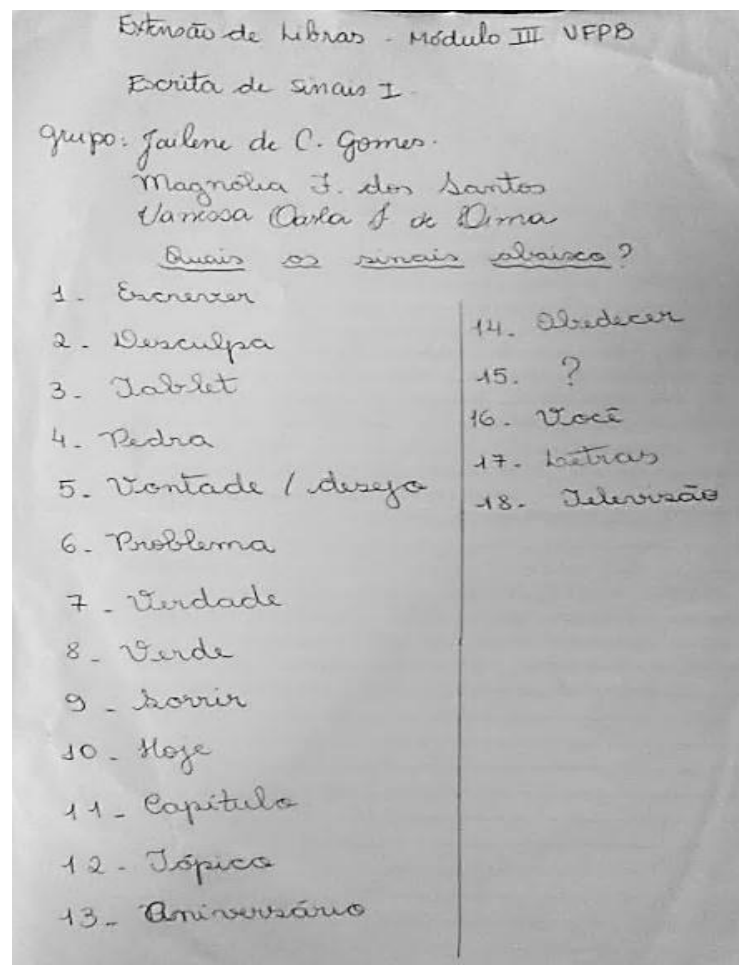 Extensão de Libras - Módulo III UFPB
Escrita de sinais I.
Grupo: Jailene de C. Gomes.
Magnólia F. dos Santos
Vanessa Carla J de Lima
Quais os sinais abaixo?
1. Escrever
2. Desculpa
3. Tablet
4. Pedra
5. Vontade / desejo
6. Problema
7. Verdade
8. Verde
9. Sorrir
10. Hoje
11. Capítulo
12. Tópico
13. Aniversário
14. Obedecer
15. ?
16. Você
17. Letras
18. Televisão